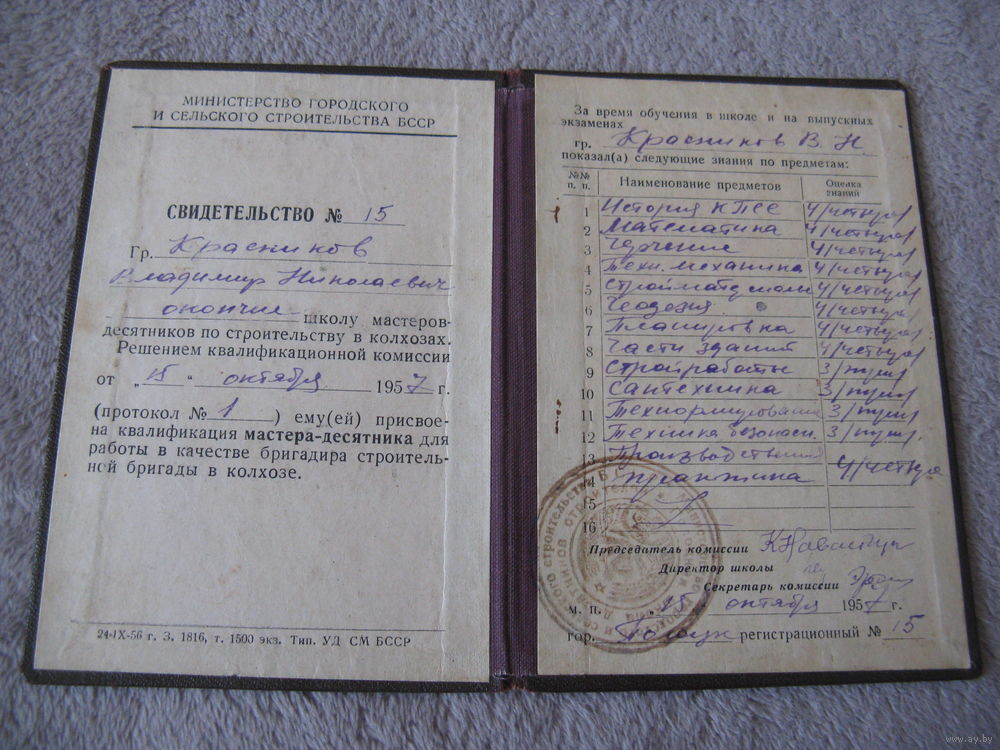 МИНИСТЕРСТВО ГОРОДСКОГО
И СЕЛЬСКОГО СТРОИТЕЛЬСТВА БССР
СВИДЕТЕЛЬСТВО № 15
Гр. Красников
Владимир Николаевич
окончил школу мастеров-
десятников по строительству в колхозах.
Решением квалификационной комиссии
от „15“ октября 1957 г.
(протокол № 1 ) ему(ей) присвое-
на квалификация мастера-десятника для
работы в качестве бригадира строитель-
ной бригады в колхозе.
24-IX-56 г. З. 1816, т. 1500 экз. Тип. УД СМ БССР
За время обучения в школе и на выпускных
экзаменах
гр. Красников В. Н.
показал(а) следующие знания по предметам:
№№ п. п. Наименование предметов Оценка знаний
1 История КПСС 4/четыре/
2 Математика 4/четыре/
3 Черчение 4/четыре/
4 Техн. механика 4/четыре/
5 Стройматериалы 4/четыре/
6 Геодезия 4/четыре/
7 Планировка 4/четыре/
8 Части зданий 4/четыре/
9 Стройработы 3/три/
10 Сантехника 3/три/
11 Технормирование 3/три/
12 Техника безопасн. 3/три/
13 Производственная
14 практика 4/четыре
15
16
Председатель комиссии
Директор школы
Секретарь комиссии
м. п. „15“ октября 1957 г.
гор. Полоцк регистрационный № 15
www.ay.by